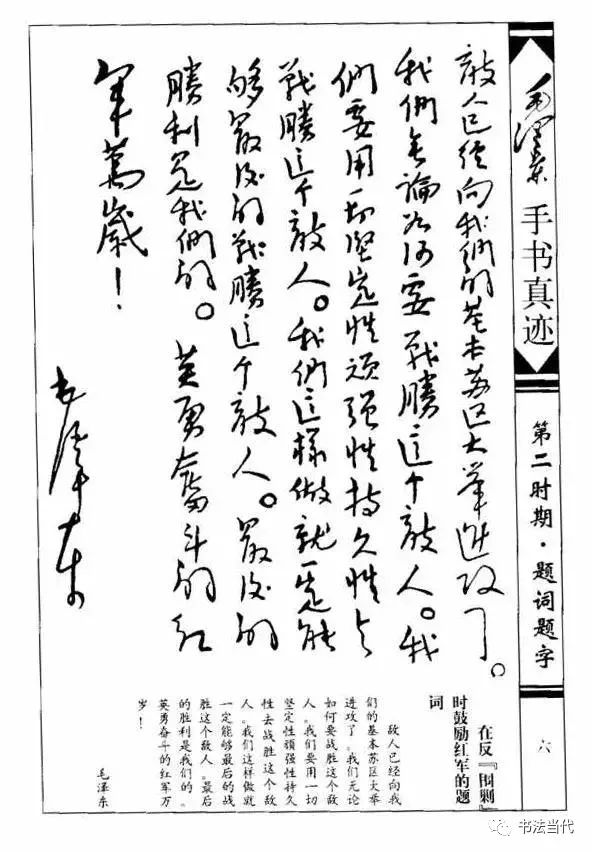 毛澤東
手书真迹
第二时期·题词题字
六
敵人已经向我们的基本苏区大举進攻了。
我們無論如何要戰勝這个敵人。我
們要用一切坚定性顽强性持久性去
戰勝這个敵人。我們這樣做就一定能
够最後的戰勝這个敵人。最後的
勝利是我們的。英勇奮斗的紅
军萬歲！
毛澤東
在反『围剿』
时鼓励红军的题
词
敌人已经向我
们的基本苏区大举
进攻了。我们无论
如何要战胜这个敌
人。我们要用一切
坚定性顽强性持久
性去战胜这个敌
人。我们这样做就
一定能够最后的战
胜这个敌人。最后
的胜利是我们的。
英勇奋斗的红军万
岁！
毛泽东
书法当代